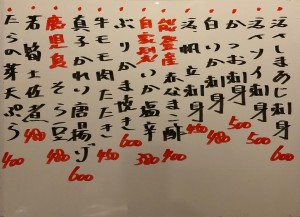 活しまあじ刺身 600
活ソイ刺身 500
かつお刺身 500
つぶ刺身 480
活帆立刺身 450
能登産 赤なまこ酢 400
自家製 いか塩辛 380
ぶりかま焼き 600
牛モモ肉たたき 450
真子かれい唐揚げ 600
鹿児島 そら豆 480
若筍土佐煮 480
たらの芽天ぷら 400